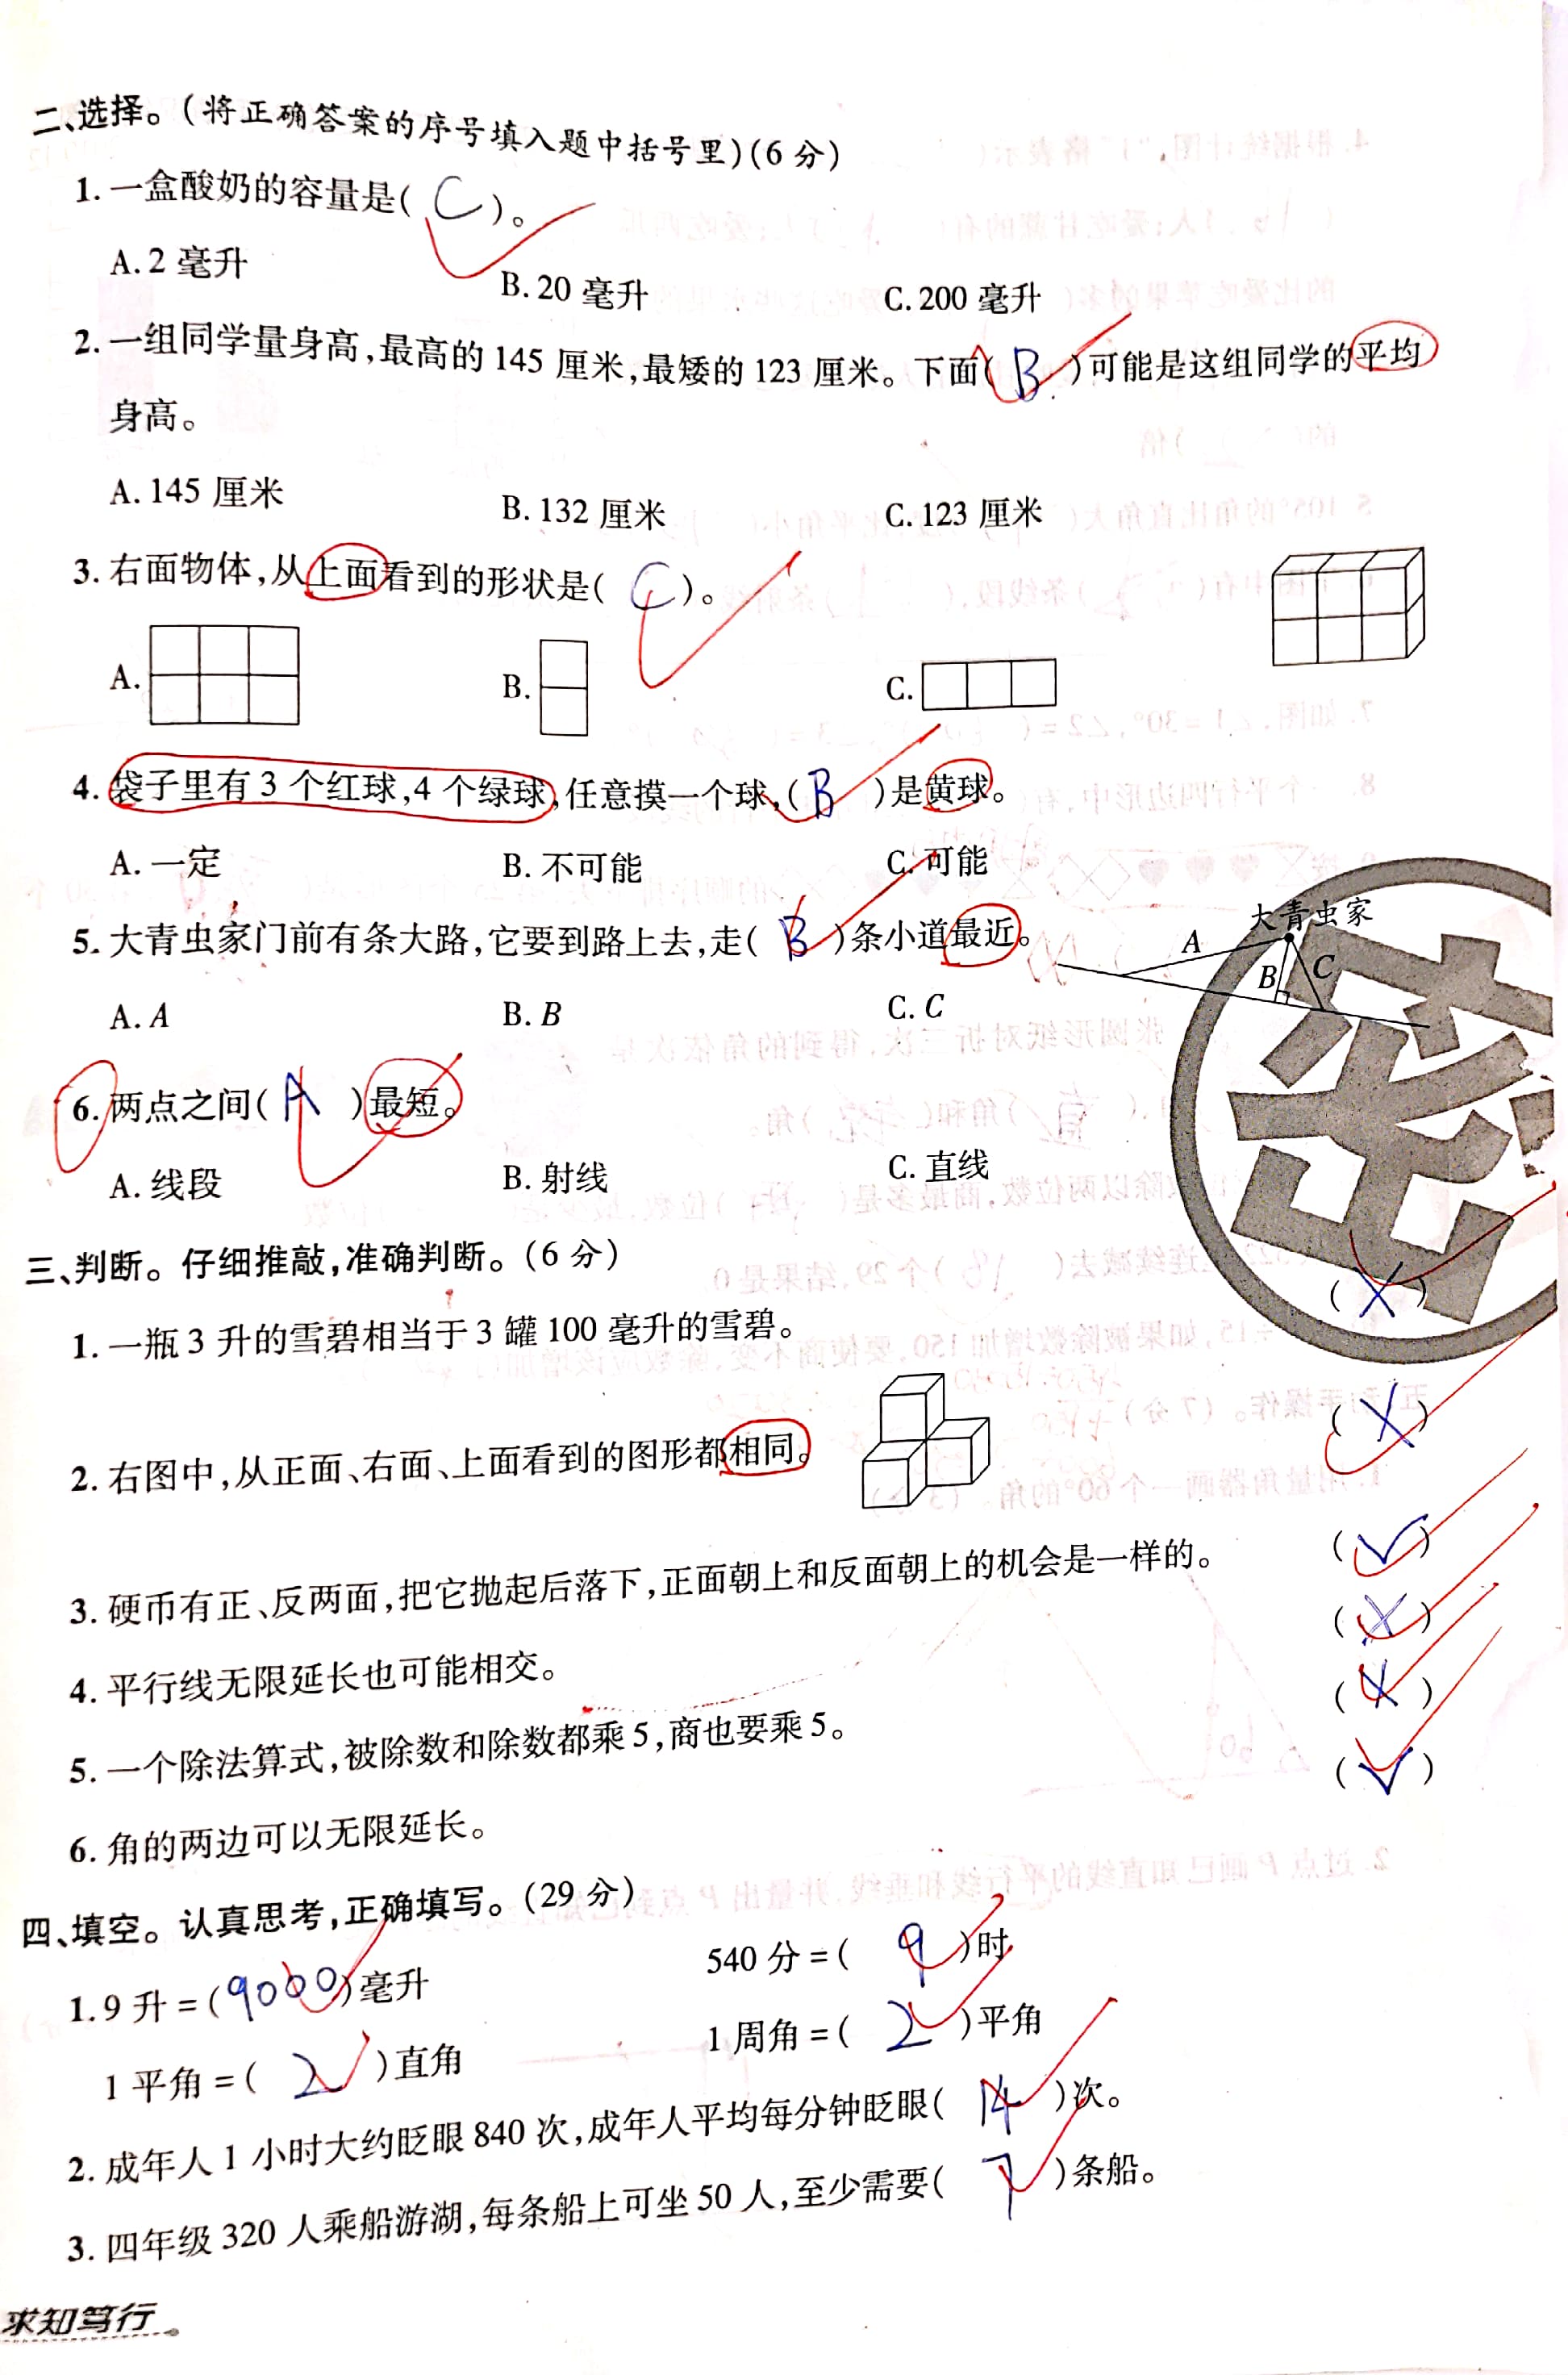 二、选择。(将正确答案的序号填入题中括号里)(6 分)
1. 一盒酸奶的容量是( C )。
A. 2 毫升 B. 20 毫升 C. 200 毫升
2. 一组同学量身高,最高的 145 厘米,最矮的 123 厘米。下面( B )可能是这组同学的平均
身高。
A. 145 厘米 B. 132 厘米 C. 123 厘米
3. 右面物体,从上面看到的形状是( C )。
A. B. C.
4. 袋子里有 3 个红球,4 个绿球,任意摸一个球,( B )是黄球。
A. 一定 B. 不可能 C. 可能
5. 大青虫家门前有条大路,它要到路上去,走( B )条小道最近。
大青虫家
A B C
A. A B. B C. C
6. 两点之间( A )最短。
A. 线段 B. 射线 C. 直线
密
三、判断。仔细推敲,准确判断。(6 分)
1. 一瓶 3 升的雪碧相当于 3 罐 100 毫升的雪碧。 ( X )
2. 右图中,从正面、右面、上面看到的图形都相同。 ( X )
3. 硬币有正、反两面,把它抛起后落下,正面朝上和反面朝上的机会是一样的。 ( √ )
4. 平行线无限延长也可能相交。 ( X )
5. 一个除法算式,被除数和除数都乘 5,商也要乘 5。 ( X )
6. 角的两边可以无限延长。 ( √ )
四、填空。认真思考,正确填写。(29 分)
1. 9 升 = ( 9000 )毫升 540 分 = ( 9 )时
1 平角 = ( 2 )直角 1 周角 = ( 2 )平角
2. 成年人 1 小时大约眨眼 840 次,成年人平均每分钟眨眼( 14 )次。
3. 四年级 320 人乘船游湖,每条船上可坐 50 人,至少需要( 7 )条船。
求知笃行